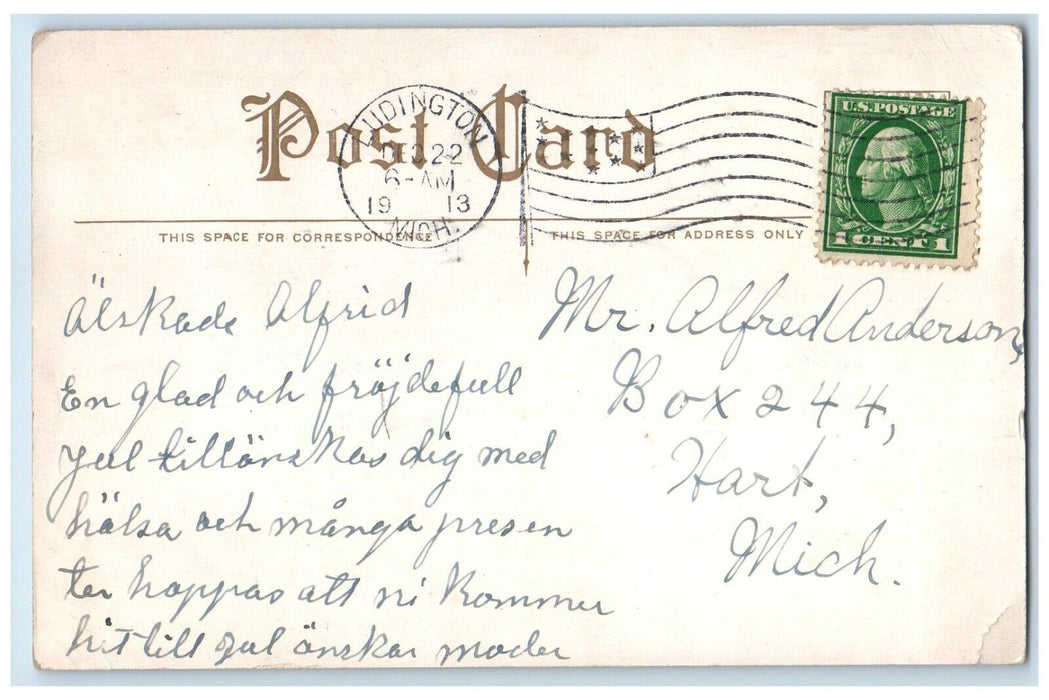 Post Card
LUDINGTON
DEC 22
6-AM
19 13
MICH.
U.S. POSTAGE
1 CENT 1
THIS SPACE FOR CORRESPONDENCE
THIS SPACE FOR ADDRESS ONLY
Älskade Alfrid
En glad och fröjdefull
jul tillönskas dig med
hälsa och många presen
ter hoppas att ni kommer
hit till jul önskar moder
Mr. Alfred Anderson,
Box 244,
Hart,
Mich.